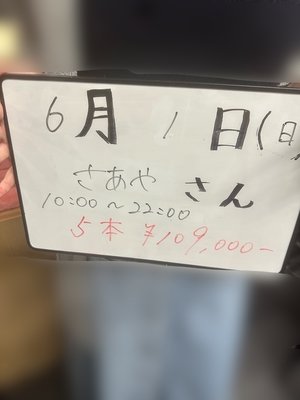 6月 1日(日
さあや さん
10:00～22:00
5本 ¥109,000-